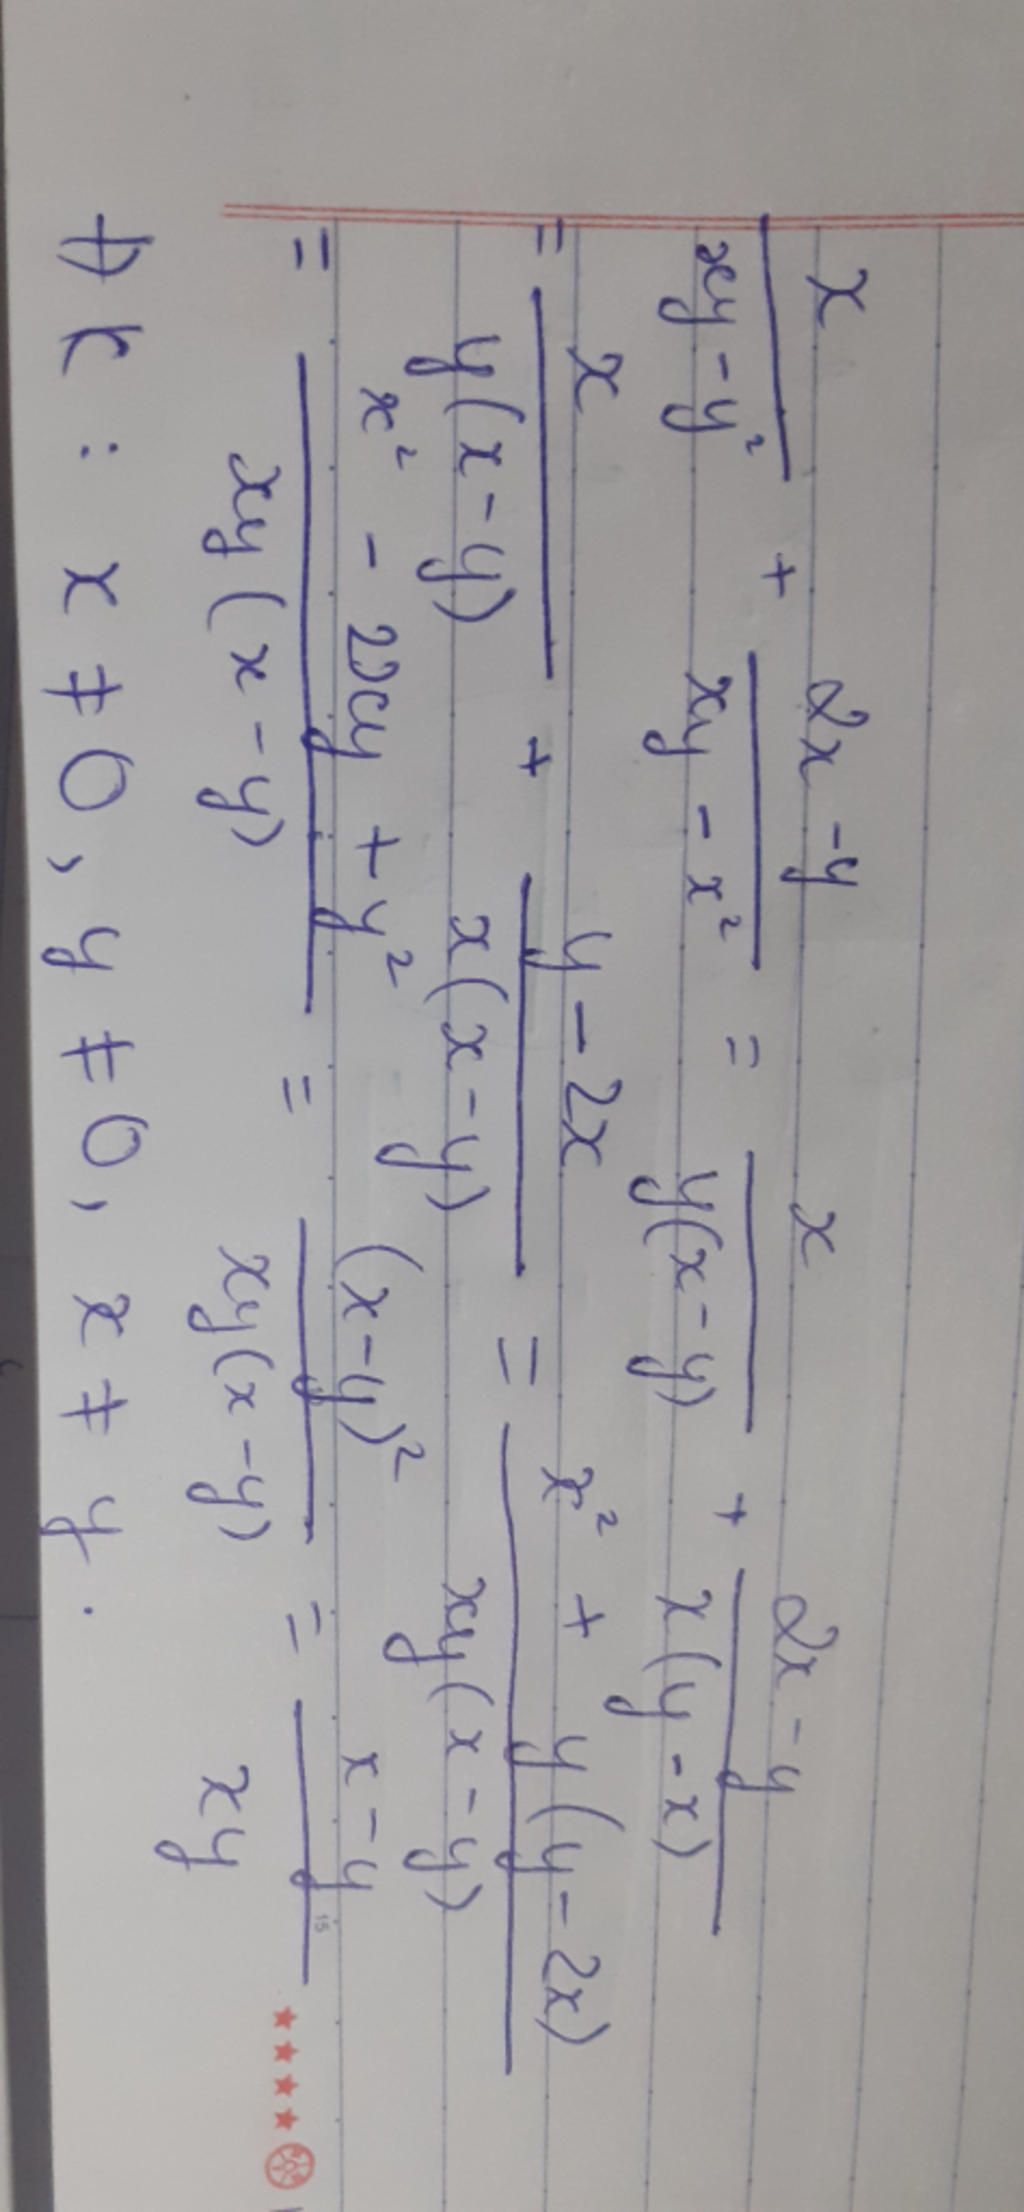 x/(xy - y²) + (2x - y)/(xy - x²) = x/(y(x - y)) + (2x - y)/(x(y - x))
= x/(y(x - y)) + (y - 2x)/(x(x - y)) = (x² + y(y - 2x))/(xy(x - y))
= (x² - 2xy + y²)/(xy(x - y)) = (x - y)²/(xy(x - y)) = (x - y)/(xy)
15
ĐK : x ≠ 0, y ≠ 0, x ≠ y.